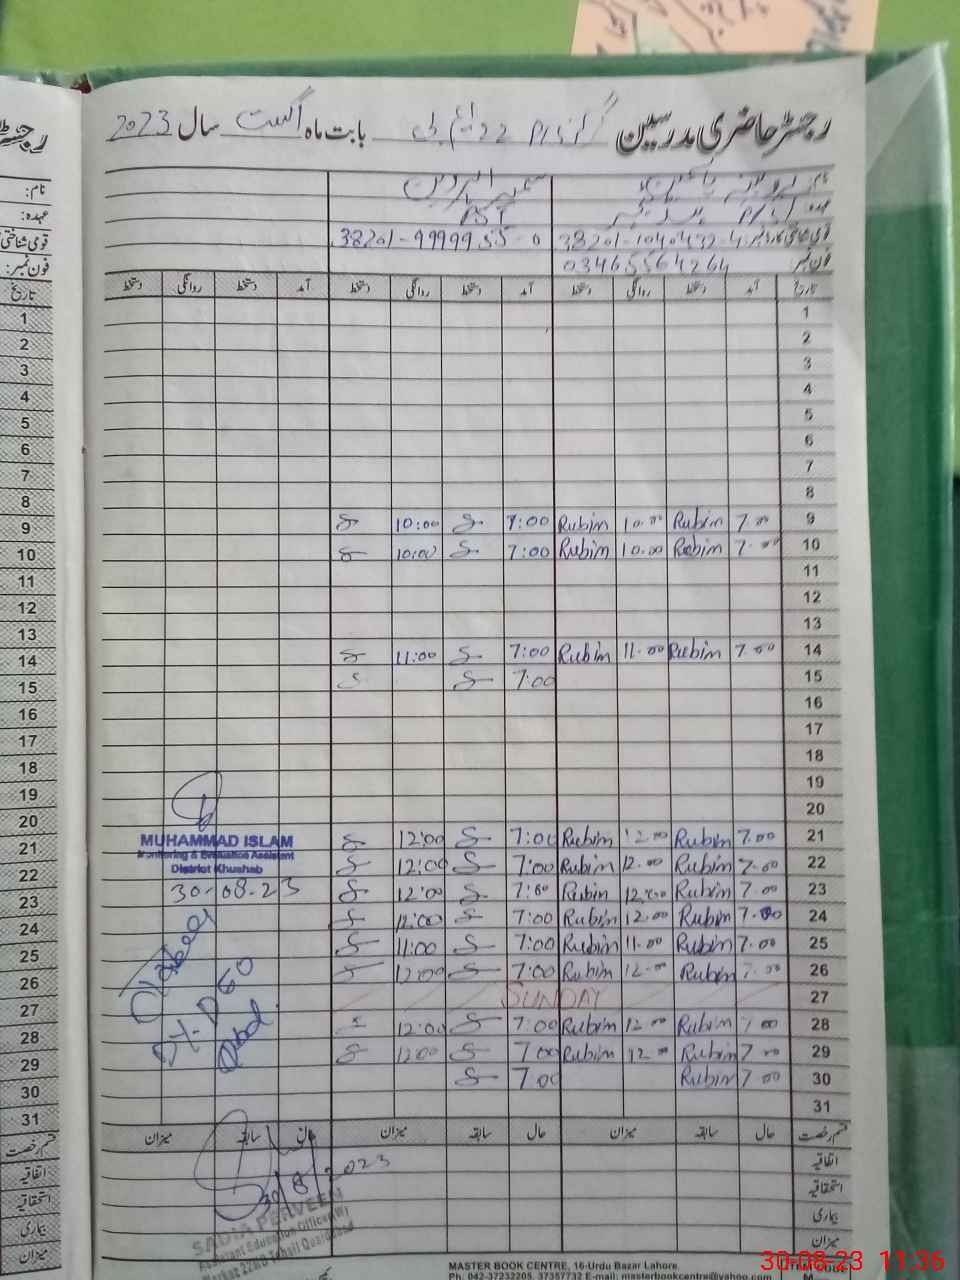 رجسٹر حاضری مدرسین گرلز P/S 22 ایم بی بابت ماہ اگست سال 2023
نام:
عہدہ: PST
قومی شناختی کارڈ نمبر: 38201-1040432-4 38201-9999955-0
فون نمبر: 03465564264
تاریخ آمد دستخط روانگی دستخط آمد دستخط روانگی دستخط آمد دستخط روانگی دستخط
1
2
3
4
5
6
7
8
9 7.00 Rubim 10.00 Rubim 7:00 10:00
10 7.00 Rubim 10.00 Rubim 7:00 10:00
11
12
13
14 7.00 Rubim 11.00 Rubim 7:00 11:00
15 7:00
16
17
18
19
20
21 7.00 Rubim 12.00 Rubim 7:00 12:00
22 7.00 Rubim 12.00 Rubim 7:00 12:00
23 7.00 Rubim 12.00 Rubim 7:00 12:00
24 7.00 Rubim 12.00 Rubim 7:00 12:00
25 7.00 Rubim 11.00 Rubim 7:00 11:00
26 7.00 Rubim 12.00 Rubim 7:00 12:00
27 SUNDAY
28 7.00 Rubim 12.00 Rubim 7:00 12:00
29 7.00 Rubim 12.00 Rubim 7:00 12:00
30 7.00 Rubim 7.00
31
MUHAMMAD ISLAM
Monitoring & Evaluation Assistant
District Khushab
30-08-23
قسم رخصت حال سابقہ میزان حال سابقہ میزان حال سابقہ میزان
اتفاقیہ
استحقاقیہ
بیماری
میزان
30/8/2023
SADIA PERVEEN
Assistant Education Officer (W)
Markaz 22MB Tehsil Quaidabad
MASTER BOOK CENTRE, 16-Urdu Bazar Lahore.
Ph: 042-37232205, 37357732 E-mail: masterbookcentre@yahoo.com
30-08-23 11:36
رجسٹر
نام:
عہدہ:
قومی شناختی
فون نمبر:
تاریخ
1
2
3
4
5
6
7
8
9
10
11
12
13
14
15
16
17
18
19
20
21
22
23
24
25
26
27
28
29
30
31
قسم رخصت
اتفاقیہ
استحقاقیہ
بیماری
میزان